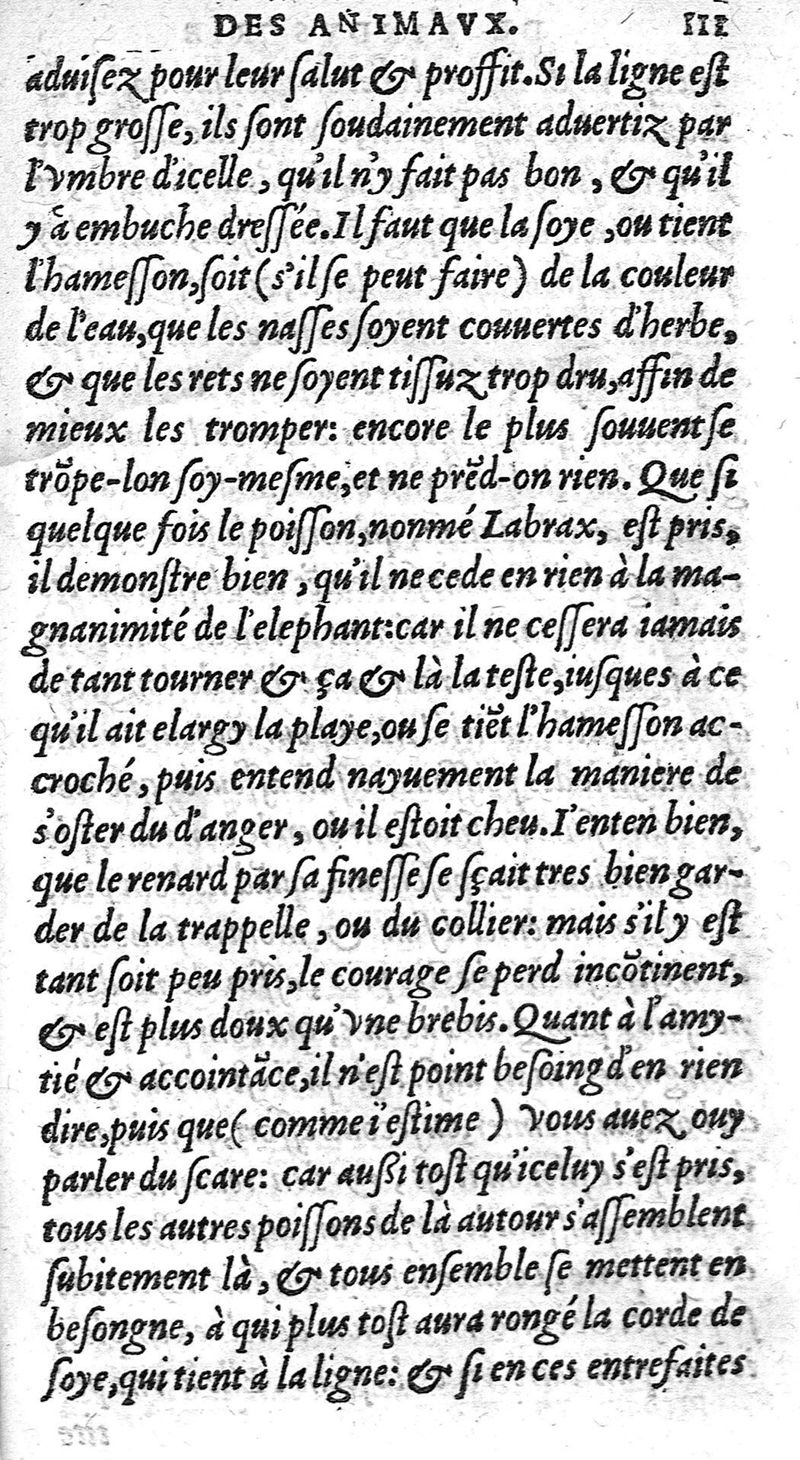 DES ANIMAVX. III
aduiſez pour leur ſalut & proffit. Si la ligne eſt
trop groſſe, ils ſont ſoudainement aduertiz par
l'vmbre d'icelle, qu'il n'y fait pas bon, & qu'il
y à embuche dreſſée. Il faut que la ſoye, ou tient
l'hameſſon, ſoit (s'il ſe peut faire) de la couleur
de l'eau, que les naſſes ſoyent couuertes d'herbe,
& que les rets ne ſoyent tiſſuz trop dru, affin de
mieux les tromper: encore le plus ſouuent ſe
trõpe-lon ſoy-meſme, et ne prẽd-on rien. Que ſi
quelque fois le poiſſon, nonmé Labrax, eſt pris,
il demonſtre bien, qu'il ne cede en rien à la ma-
gnanimité de l'elephant: car il ne ceſſera iamais
de tant tourner & ça & là la teſte, iuſques à ce
qu'il ait elargy la playe, ou ſe tiẽt l'hameſſon ac-
croché, puis entend nayuement la maniere de
s'oſter du d'anger, ou il eſtoit cheu. I'enten bien,
que le renard par ſa fineſſe ſe ſçait tres bien gar-
der de la trappelle, ou du collier: mais s'il y eſt
tant ſoit peu pris, le courage ſe perd incõtinent,
& eſt plus doux qu'vne brebis. Quant à l'amy-
tié & accointãce, il n'eſt point beſoing d'en rien
dire, puis que ( comme i'eſtime ) vous auez ouy
parler du ſcare: car auſſi toſt qu'iceluy s'eſt pris,
tous les autres poiſſons de là autour s'aſſemblent
ſubitement là, & tous enſemble ſe mettent en
beſongne, à qui plus toſt aura rongé la corde de
ſoye, qui tient à la ligne: & ſi en ces entrefaites